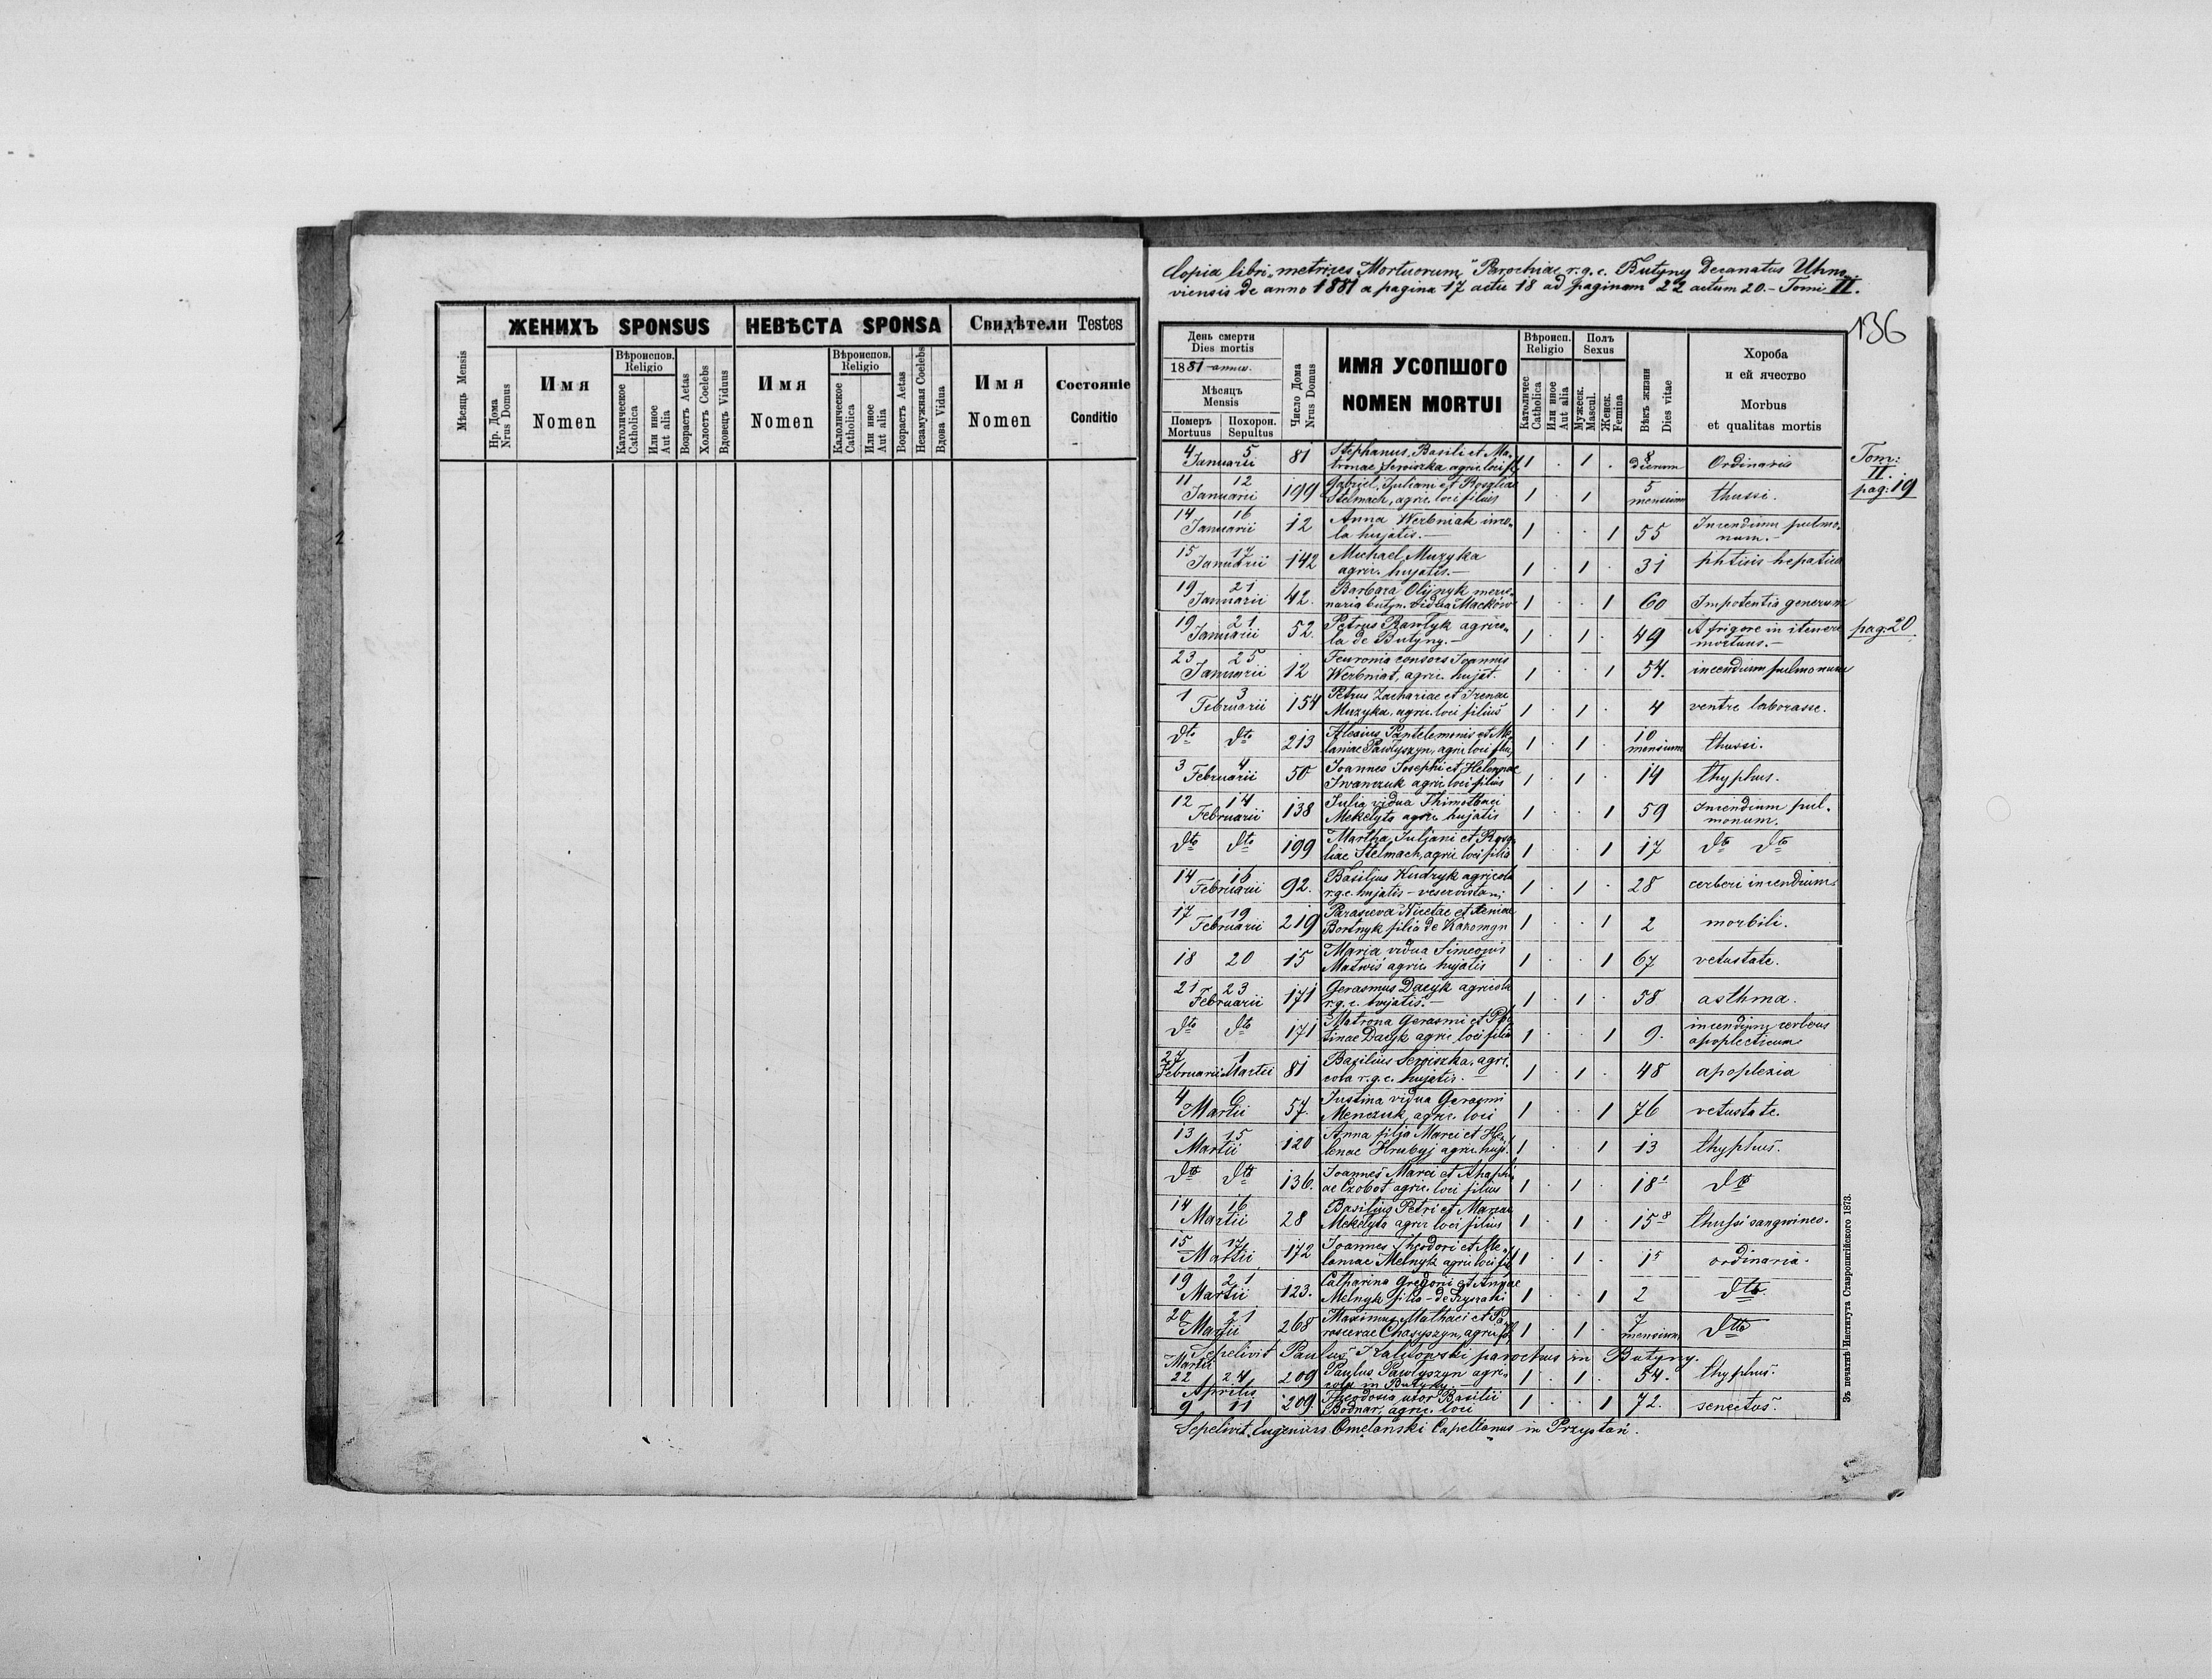 Copia libri „metrices Mortuorum" Parochiae r. g. c. Butyny Decanatus Uhno-
viensis de anno 1881 a pagina 17 actu 18 ad paginam 22 actum 20. - Tomi II.
136
Мѣсяць Mensis
ЖЕНИХЪ SPONSUS
Нр. Дома Nrus Domus
Имя Nomen
Вѣроиспов. Religio
Католическое Catholica
Или иное Aut alia
Возрастъ Aetas
Холостъ Coelebs
Вдовецъ Viduus
НЕВѢСТА SPONSA
Имя Nomen
Вѣроиспов. Religio
Католическое Catholica
Или иное Aut alia
Возрастъ Aetas
Незамужная Coelebs
Вдова Vidua
Свидѣтели Testes
Имя Nomen
Состояніе Conditio
День смерти
Dies mortis
1881 anno.
Мѣсяць
Mensis
Померъ Mortuus
Похорон. Sepultus
Число Дома Nrus Domus
ИМЯ УСОПШОГО
NOMEN MORTUI
Вѣроисп. Religio
Католичес Catholica
Или иное Aut alia
Полъ Sexus
Мужеск. Mascul.
Женск. Femina
Вѣкъ жизни Dies vitae
Хороба
и ей ячество
Morbus
et qualitas mortis
4 Januarii 5 81 Stephanus, Basili et Ma-
tronae agric. loci fil. 1 . 1 . 8 dierum Ordinaria
Tom: II. pag: 19
11 Januarii 12 199 Gabriel, Juliani et Rosaliae
Stelmach, agric. loci filius 1 . 1 5 mensium thussi.
14 Januarii 16 12 Anna Werbniak inco-
la hujatis. 1 . . 1 55 Incendium pulmo-
num.
15 Januarii 17 142 Michael Muzyka
agric. hujatis. 1 . 1 . 31 phtisis hepatica
19 Januarii 21 42. Barbara Olijnyk merce-
naria butyn. vidua Macków 1 . . 1 60 Impotentia generum
19 Januarii 21 52. Petrus Pawlyk agrico-
la de Butyny. 1 . 1 . 49 A frigore in itenere
mortuus.
pag: 20
23 Januarii 25 12 Feuronia consors Joannis
Werbniat, agric. hujat. 1 . . 1 54. incendium pulmonum
1 Februarii 3 154 Petrus Zachariae et Irenae
Muzyka, agric. loci filius 1 . 1 . 4 ventre laborasse.
dto dto 213 Alexius, Pantelemonis et Me-
laniae Pawłyszyn, agric. loci filius 1 . 1 . 10 mensium thussi.
3 Februarii 4 50 Joannes Josephi et Helennae
Iwanczuk agric. loci filius 1 . 1 . 14 thyphus.
12 Februarii 14 138 Julia vidua Thimothaei
Mekelyta agric. hujatis 1 . . 1 59 Incendium pul-
monum.
dto dto 199 Martha, Juliani et Rosa-
liae Stelmach, agric. loci filia 1 . . 1 17 dto dto
14 Februarii 16 92. Basilius Kudryk agricola
r. g. c. hujatis - 1 . 1 . 28 cerberi incendium.
17 Februarii 19 219 Parasceva Nicetae et Xeniae
Bortnyk filia de 1 . . 1 2 morbili.
18 20 15 Maria vidua Simeonis
Matwiś agric. hujatis 1 . . 1 67 vetustate.
21 Februarii 23 171 Gerasmus Dacyk agricola
r. g. c. hujatis. 1 . 1 . 58 asthma.
dto dto 171 Matrona Gerasmi et
Dacyk agric. loci filia 1 . . 1 9. incendium cerberis
apoplecticum
27 Februarii 1 Martii 81 Basilius agri-
cola r. g. c. hujatis. 1 . 1 . 48 apoplexia
4 Martii 6 57. Justina vidua Gerasmi
Menczuk, agric. loci 1 . . 1 76 vetustate.
13 Martii 15 120 Anna filia Marci et He-
lenae Hrubyj agric. huj. 1 . . 1 13 thyphus.
dto dto 136. Joannes Marci et
Czobot agric. loci filius 1 . 1 . 18 dto
14 Martii 16 28 Basilius Petri et Mariae
Mekelyta agric loci filius 1 . 1 . 15 8 thussi sangvineo.
15 Martii 17 172 Joannes Theodori et Me-
laniae Melnyk agric loci fil. 1 . 1 . 15 ordinaria.
19 Martii 21 123. Catharina Gregorii et Annae
Melnyk filia - de 1 . . 1 2 dto.
20 Martii 21 268 Maximus Mathaei et Pa-
rascevae Chasyszyn, agric. fil. 1 . 1 . 7 mensium dtto
Sepelivit Paulus Kalitowski parochus in Butyny.
Martii
22 24 209 Paulus Pawłyszyn agri-
cola in Butyny. 1 . 1 . 54. thyphus.
Aprilis
9 11 209 Theodosia uxor Basilii
Bodnar, agric. loci 1 . . 1 72. senectus.
Sepelivit Eugenius Omelański Capellanus in Przystań.
Зъ печатнѣ Института Ставропигійского 1873.